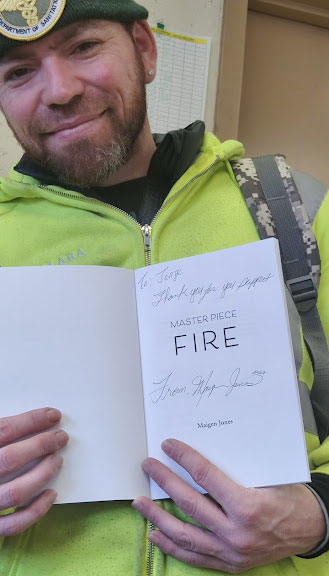 DEPARTMENT OF SANITATION
To: Jorge
Thank you for you support
MASTER PIECE
FIRE
From: Maigen Jones
Maigen Jones